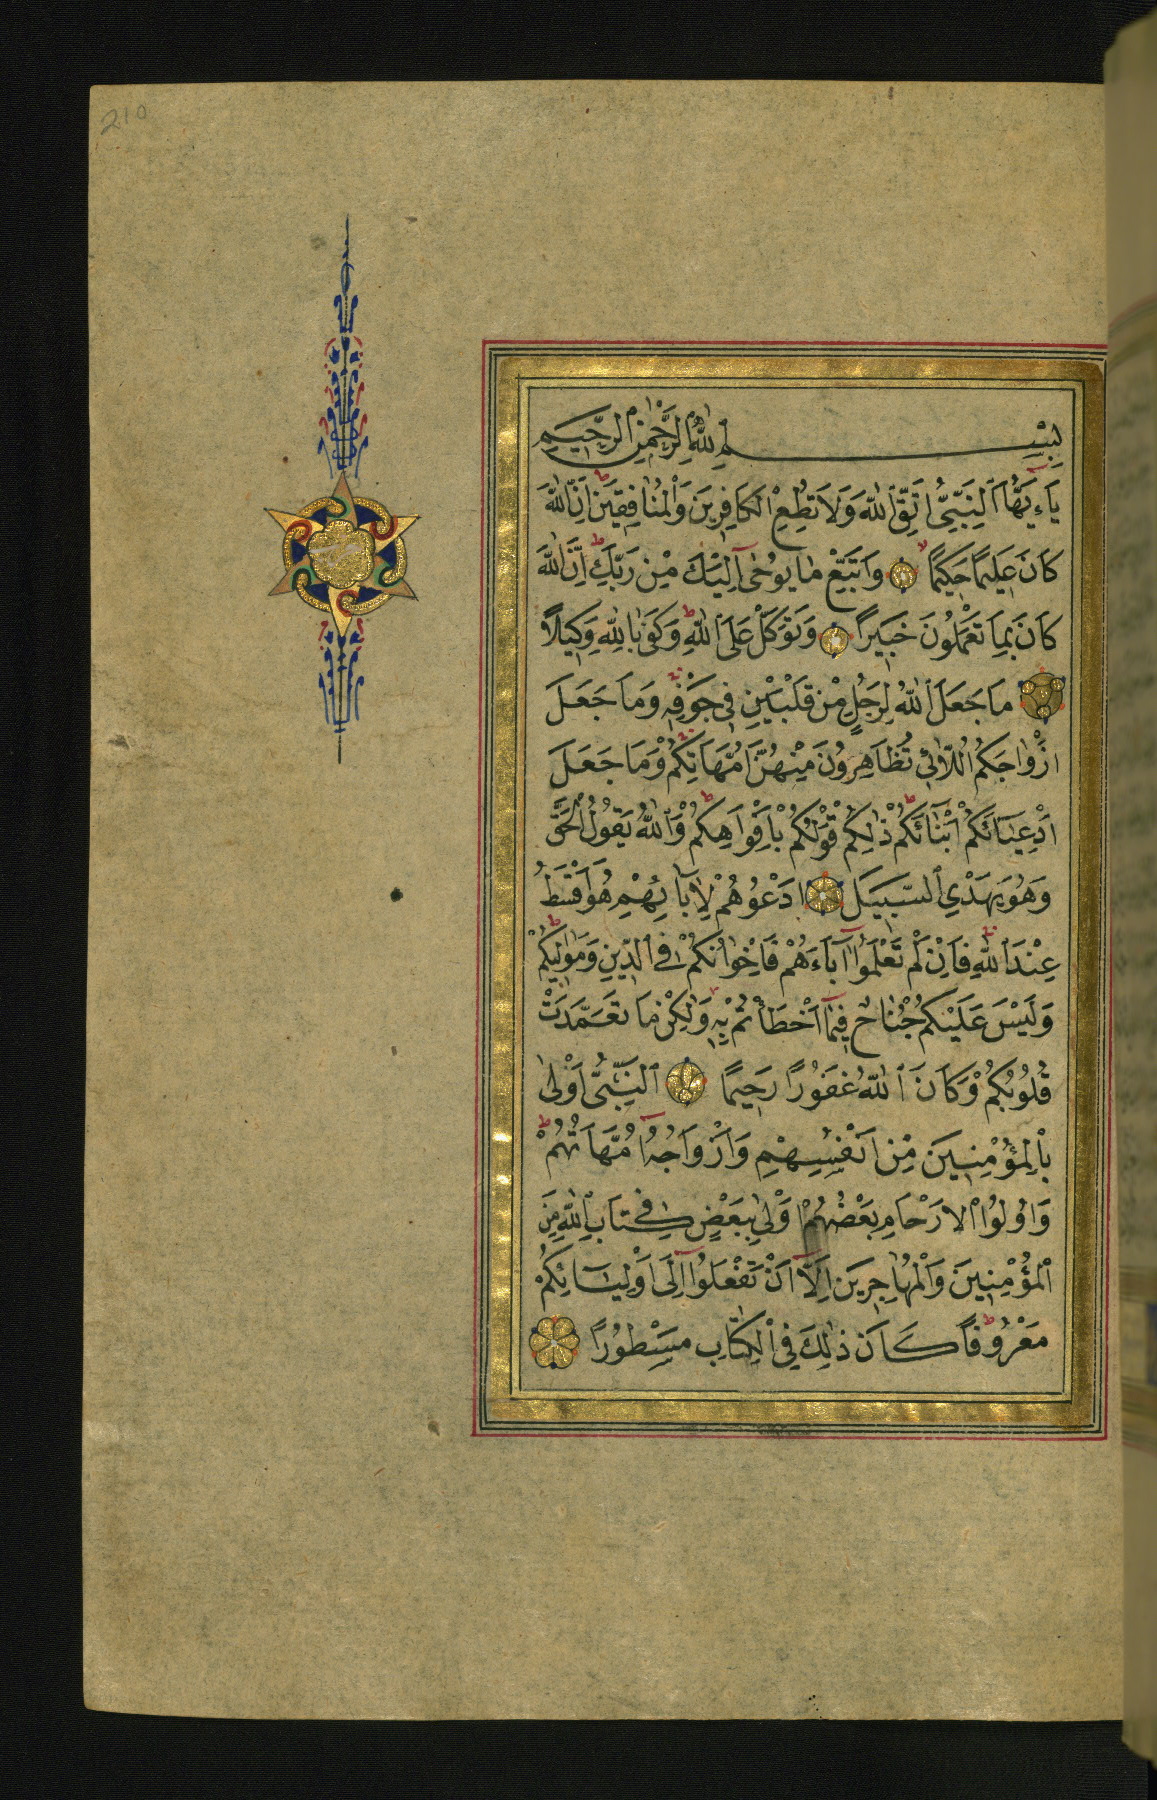 210
بِسْمِ اللّٰهِ الرَّحْمٰنِ الرَّحِيمِ
يَاءَيُّهَا النَّبِيُّ اتَّقِ اللّٰهَ وَلَا تُطِعِ الْكَافِرِينَ وَالْمُنَافِقِينَ ط اِنَّ اللّٰهَ
كَانَ عَلِيمًا حَكِيمًا وَاتَّبِعْ مَا يُوحٰى اِلَيْكَ مِنْ رَبِّكَ ط اِنَّ اللّٰهَ
كَانَ بِمَا تَعْمَلُونَ خَبِيرًا وَتَوَكَّلْ عَلَى اللّٰهِ ط وَكَفٰى بِاللّٰهِ وَكِيلًا
مَا جَعَلَ اللّٰهُ لِرَجُلٍ مِنْ قَلْبَيْنِ فِي جَوْفِهِ وَمَا جَعَلَ
اَزْوَاجَكُمُ اللَّائِي تُظَاهِرُونَ مِنْهُنَّ اُمَّهَاتِكُمْ وَمَا جَعَلَ
اَدْعِيَاءَكُمْ اَبْنَاءَكُمْ ط ذٰلِكُمْ قَوْلُكُمْ بِاَفْوَاهِكُمْ ط وَاللّٰهُ يَقُولُ الْحَقَّ
وَهُوَ يَهْدِي السَّبِيلَ ادْعُوهُمْ لِاٰبَائِهِمْ هُوَ اَقْسَطُ
عِنْدَ اللّٰهِ فَاِنْ لَمْ تَعْلَمُوا اٰبَاءَهُمْ فَاِخْوَانُكُمْ فِي الدِّينِ وَمَوَالِيكُمْ ط
وَلَيْسَ عَلَيْكُمْ جُنَاحٌ فِيمَا اَخْطَأْتُمْ بِهِ وَلٰكِنْ مَا تَعَمَّدَتْ
قُلُوبُكُمْ وَكَانَ اللّٰهُ غَفُورًا رَحِيمًا النَّبِيُّ اَوْلٰى
بِالْمُؤْمِنِينَ مِنْ اَنْفُسِهِمْ وَاَزْوَاجُهُ اُمَّهَاتُهُمْ ط
وَاُولُوا الْاَرْحَامِ بَعْضُهُمْ اَوْلٰى بِبَعْضٍ فِي كِتَابِ اللّٰهِ مِنَ
الْمُؤْمِنِينَ وَالْمُهَاجِرِينَ اِلَّا اَنْ تَفْعَلُوا اِلٰى اَوْلِيَائِكُمْ
مَعْرُوفًا ط كَانَ ذٰلِكَ فِي الْكِتَابِ مَسْطُورًا